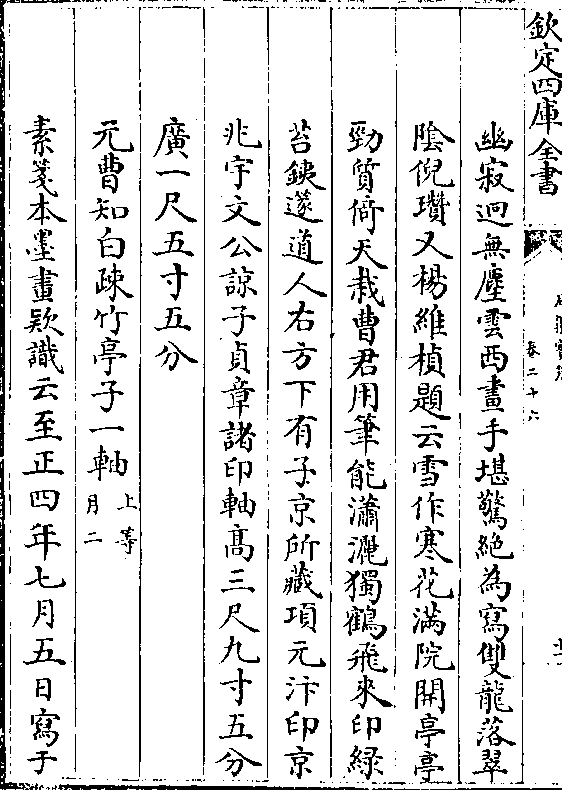 欽定四庫全書
卷二十六
幽寂迥無塵雲西畫手堪驚絕為寫雙龍落翠
陰倪瓚又楊維楨題云雪作寒花滿院開亭亭
勁質倚天栽曹君用筆能瀟灑獨鶴飛來印緑
苔銕邃道人右方下有子京所藏項元汴印京
兆宇文公諒子貞章諸印軸髙三尺九寸五分
廣一尺五寸五分
元曹知白疎竹亭子一軸
上等
月二
素箋本墨畫欵識云至正四年七月五日寫于